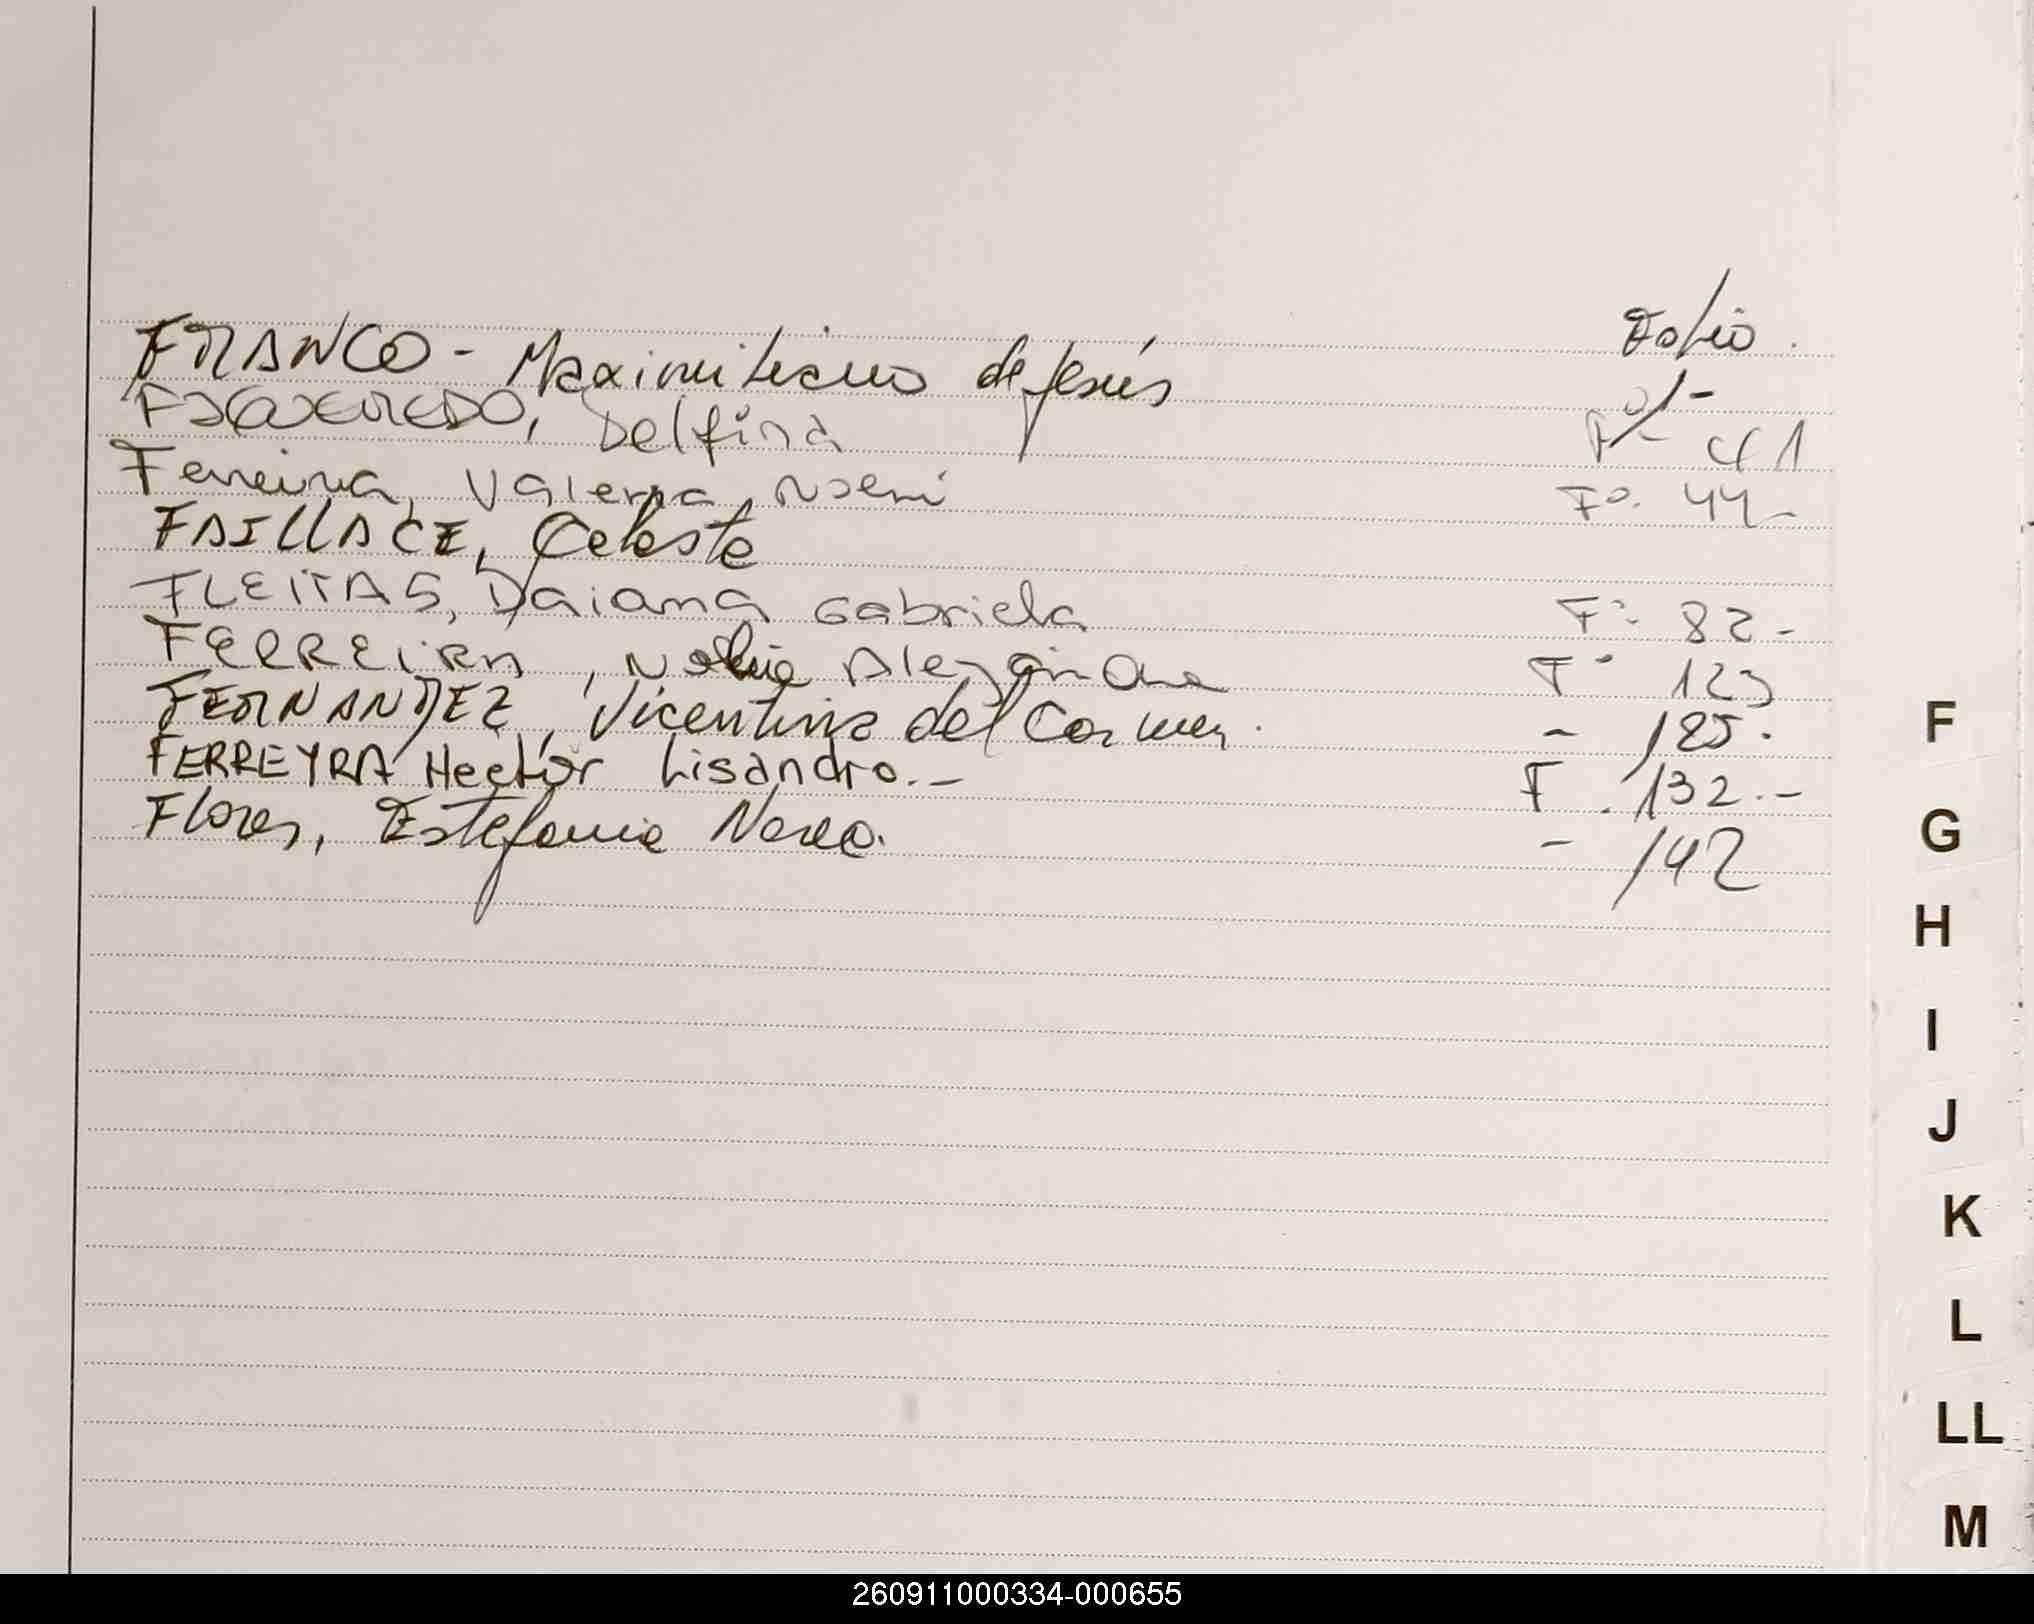 Folio.
FRANCO - Maximiliano de Jesús 01-
FIGUEREDO, Delfina Fº 41
Ferreira, Valeria Noemi Fº. 44-
FAILLACE, Celeste
FLEITAS, Daiana Gabriela Fº 82-
FERREIRA, Nelia Alejandra Fº 123
FERNANDEZ, Vicentina del Carmen. - 125.
FERREYRA Hector Lisandro.- F. 132.-
Flores, Estefania Nerea. - 142
F
G
H
I
J
K
L
LL
M
260911000334-000655